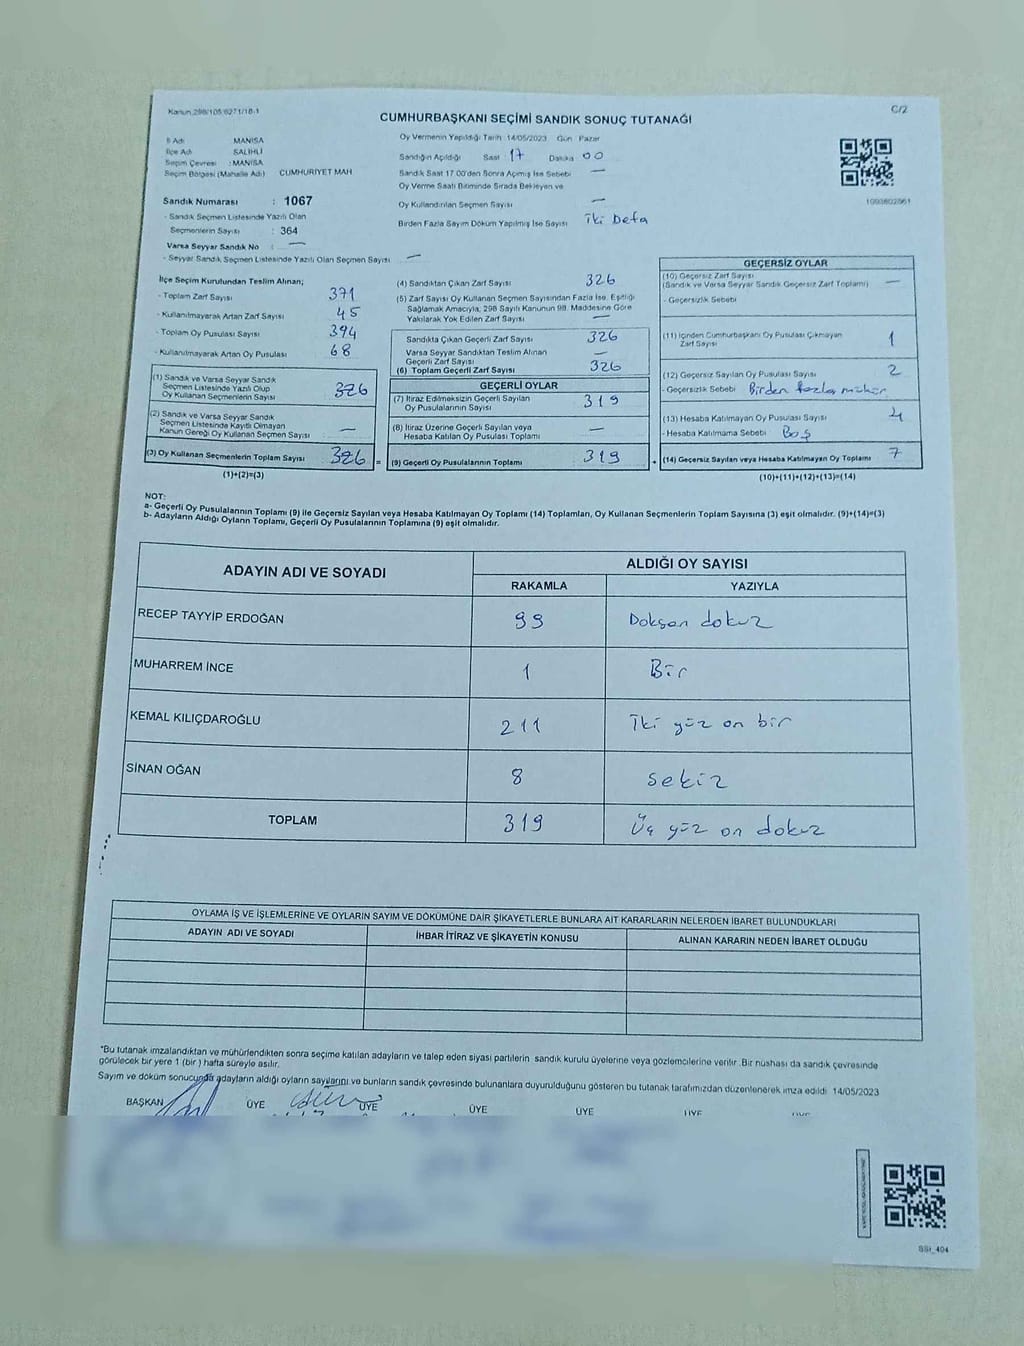 Kanun 298/105 6271/18-1
C/2
CUMHURBAŞKANI SEÇİMİ SANDIK SONUÇ TUTANAĞI
İl Adı MANİSA
İlçe Adı SALİHLİ
Seçim Çevresi : MANİSA
Seçim Bölgesi (Mahalle Adı) CUMHURİYET MAH
Sandık Numarası : 1067
- Sandık Seçmen Listesinde Yazılı Olan
Seçmenlerin Sayısı : 364
Varsa Seyyar Sandık No : —
- Seyyar Sandık Seçmen Listesinde Yazılı Olan Seçmen Sayısı —
Oy Vermenin Yapıldığı Tarih 14/05/2023 Gün Pazar
Sandığın Açıldığı Saat 17 Dakika 00
Sandık Saat 17.00'den Sonra Açımış İse Sebebi —
Oy Verme Saati Bitiminde Sırada Bekleyen ve
Oy Kullandırılan Seçmen Sayısı —
Birden Fazla Sayım Döküm Yapılmış İse Sayısı iki Defa
İlçe Seçim Kurulundan Teslim Alınan;
- Toplam Zarf Sayısı 371
- Kullanılmayarak Artan Zarf Sayısı 45
- Toplam Oy Pusulası Sayısı 394
- Kullanılmayarak Artan Oy Pusulası 68
(1) Sandık ve Varsa Seyyar Sandık
Seçmen Listesinde Yazılı Olup
Oy Kullanan Seçmenlerin Sayısı 326
(2) Sandık ve Varsa Seyyar Sandık
Seçmen Listesinde Kayıtlı Olmayan
Kanun Gereği Oy Kullanan Seçmen Sayısı —
(3) Oy Kullanan Seçmenlerin Toplam Sayısı 326 =
(1)+(2)=(3)
(4) Sandıktan Çıkan Zarf Sayısı 326
(5) Zarf Sayısı Oy Kullanan Seçmen Sayısından Fazla İse, Eşitliği
Sağlamak Amacıyla, 298 Sayılı Kanunun 98. Maddesine Göre
Yakılarak Yok Edilen Zarf Sayısı —
Sandıkta Çıkan Geçerli Zarf Sayısı 326
Varsa Seyyar Sandıktan Teslim Alınan
Geçerli Zarf Sayısı —
(6) Toplam Geçerli Zarf Sayısı 326
GEÇERLİ OYLAR
(7) İtiraz Edilmeksizin Geçerli Sayılan
Oy Pusulalarının Sayısı 319
(8) İtiraz Üzerine Geçerli Sayılan veya
Hesaba Katılan Oy Pusulası Toplamı —
(9) Geçerli Oy Pusulalarının Toplamı 319 +
GEÇERSİZ OYLAR
(10) Geçersiz Zarf Sayısı
(Sandık ve Varsa Seyyar Sandık Geçersiz Zarf Toplamı) —
- Geçersizlik Sebebi
(11) İçinden Cumhurbaşkanı Oy Pusulası Çıkmayan
Zarf Sayısı 1
(12) Geçersiz Sayılan Oy Pusulası Sayısı 2
- Geçersizlik Sebebi Birden fazla mühür
(13) Hesaba Katılmayan Oy Pusulası Sayısı 4
- Hesaba Katılmama Sebebi Boş
(14) Geçersiz Sayılan veya Hesaba Katılmayan Oy Toplamı 7
(10)+(11)+(12)+(13)=(14)
NOT:
a- Geçerli Oy Pusulalarının Toplamı (9) ile Geçersiz Sayılan veya Hesaba Katılmayan Oy Toplamı (14) Toplamları, Oy Kullanan Seçmenlerin Toplam Sayısına (3) eşit olmalıdır. (9)+(14)=(3)
b- Adayların Aldığı Oyların Toplamı, Geçerli Oy Pusulalarının Toplamına (9) eşit olmalıdır.
ADAYIN ADI VE SOYADI ALDIĞI OY SAYISI
RAKAMLA YAZIYLA
RECEP TAYYİP ERDOĞAN 99 Doksan dokuz
MUHARREM İNCE 1 Bir
KEMAL KILIÇDAROĞLU 211 İki yüz on bir
SİNAN OĞAN 8 sekiz
TOPLAM 319 Üç yüz on dokuz
OYLAMA İŞ VE İŞLEMLERİNE VE OYLARIN SAYIM VE DÖKÜMÜNE DAİR ŞİKAYETLERLE BUNLARA AİT KARARLARIN NELERDEN İBARET BULUNDUKLARI
ADAYIN ADI VE SOYADI İHBAR İTİRAZ VE ŞİKAYETİN KONUSU ALINAN KARARIN NEDEN İBARET OLDUĞU
*Bu tutanak imzalandıktan ve mühürlendikten sonra seçime katılan adayların ve talep eden siyasi partilerin sandık kurulu üyelerine veya gözlemcilerine verilir. Bir nüshası da sandık çevresinde
görülecek bir yere 1 (bir) hafta süreyle asılır.
Sayım ve döküm sonucunda adayların aldığı oyların sayılarını ve bunların sandık çevresinde bulunanlara duyurulduğunu gösteren bu tutanak tarafımızdan düzenlenerek imza edildi 14/05/2023
BAŞKAN ÜYE ÜYE ÜYE ÜYE ÜYE
SSI_404